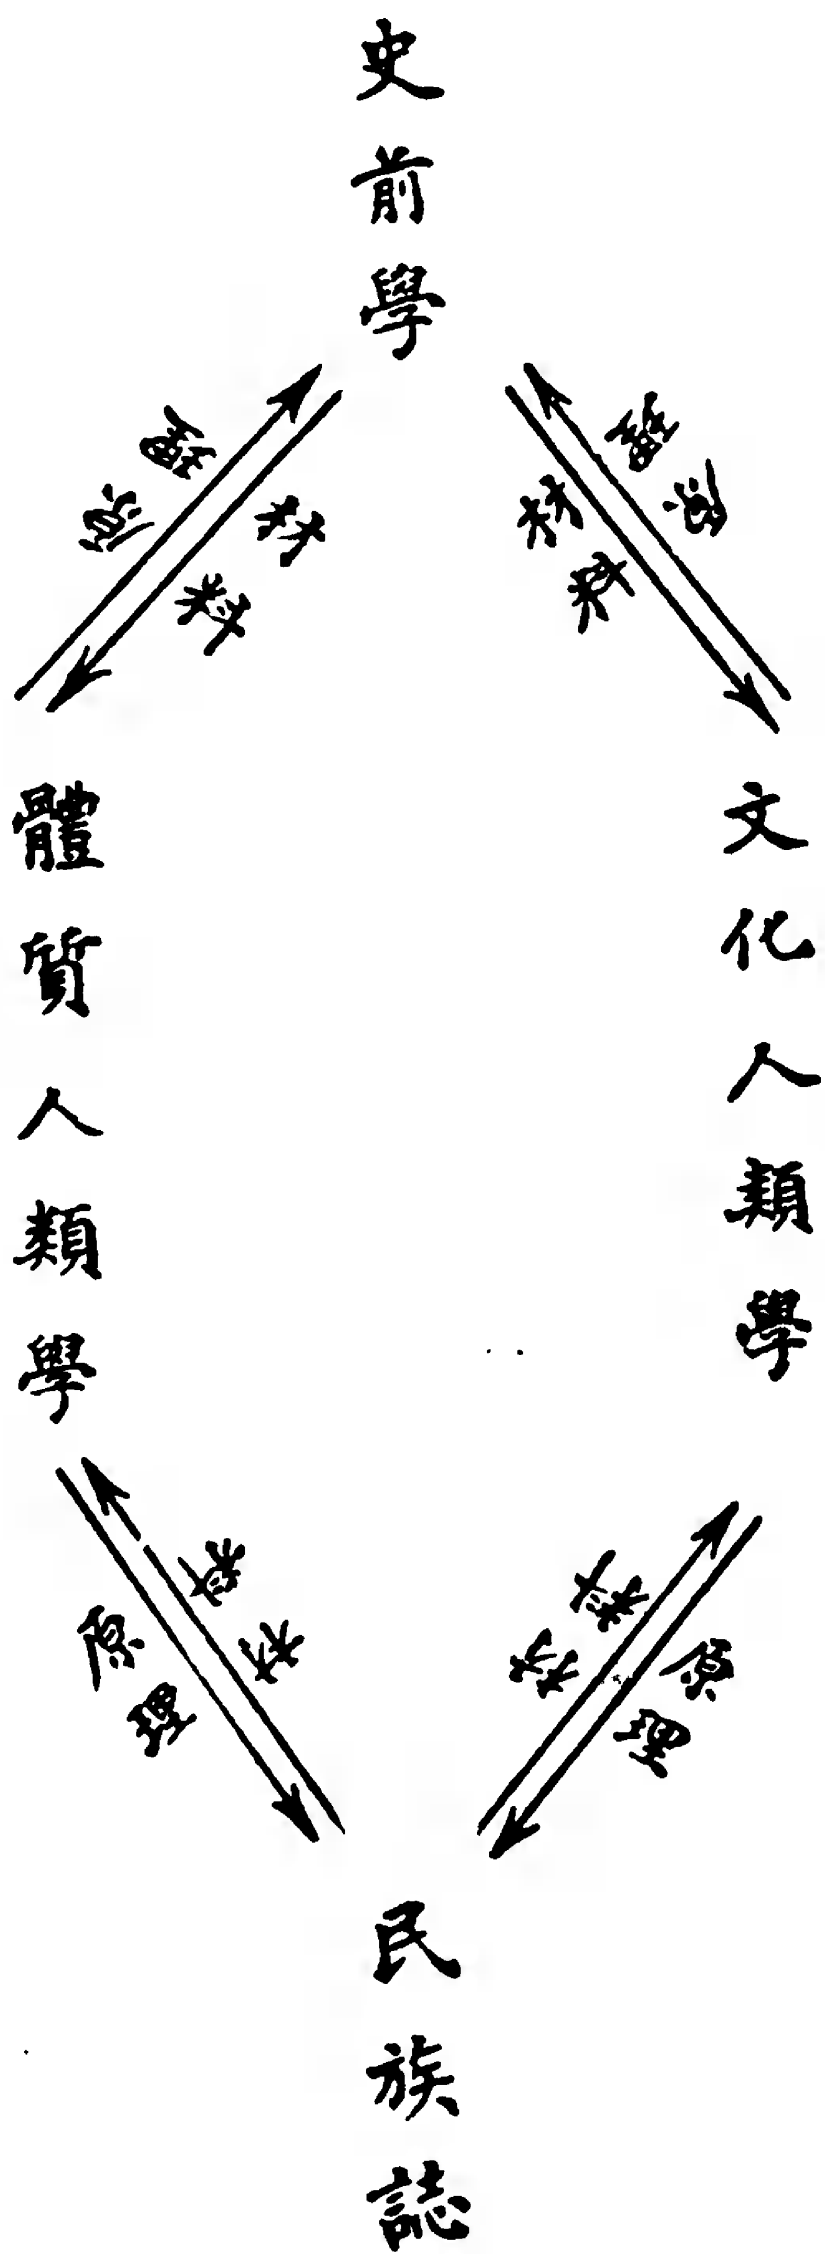 史前學
原理
材料
材料
原理
體質人類學
文化人類學
原理
材料
材料
原理
民族誌